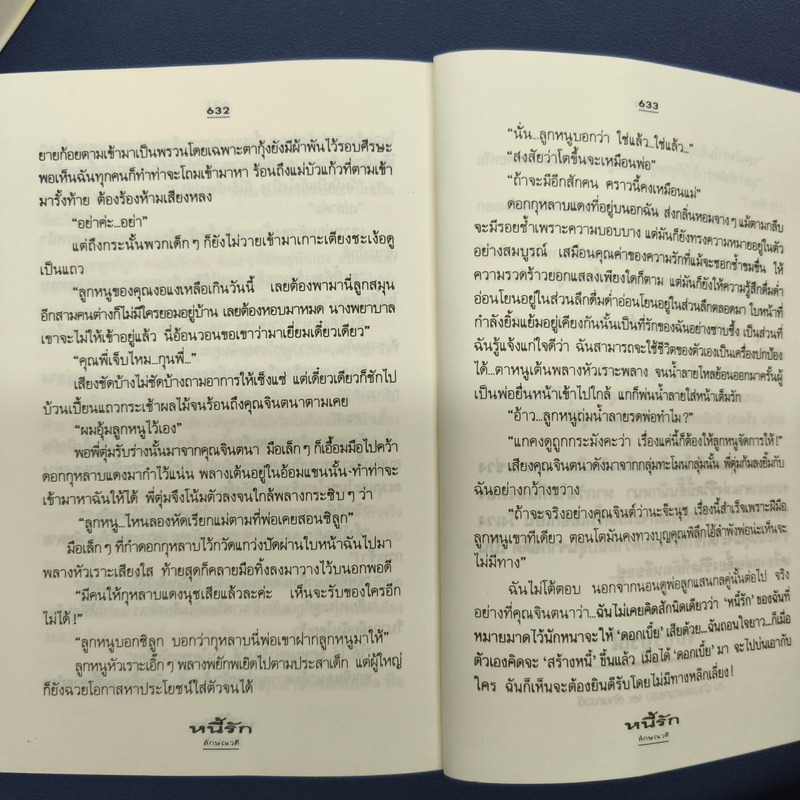 632
ยายก้อยตามเข้ามาเป็นพรวนโดยเฉพาะตากุ้งยังมีผ้าพันไว้รอบศีรษะ
พอเห็นฉันทุกคนก็ทำท่าจะโถมเข้ามาหา ร้อนถึงแม่บัวแก้วที่ตามเข้า
มารั้งท้าย ต้องร้องห้ามเสียงหลง
“อย่าค่ะ...อย่า”
แต่ถึงกระนั้นพวกเด็กๆ ก็ยังไม่วายเข้ามาเกาะเตียงชะเง้อดู
เป็นแถว
“ลูกหนูของคุณงอแงเหลือเกินวันนี้ เลยต้องพามานี่ลูกสมุน
อีกสามคนต่างก็ไม่มีใครยอมอยู่บ้าน เลยต้องหอบมาหมด นางพยาบาล
เขาจะไม่ให้เข้าอยู่แล้ว นี่อ้อนวอนขอเขาว่ามาเยี่ยมเดี๋ยวเดียว”
“คุณพี่เจ็บไหม...กุนพี่...”
เสียงชัดบ้างไม่ชัดบ้างถามอาการให้เซ็งแซ่ แต่เดี๋ยวเดียวก็ชักไป
บ้วนเปี้ยนแถวกระเช้าผลไม้จนร้อนถึงคุณจินตนาตามเคย
“ผมอุ้มลูกหนูไว้เอง”
พอพี่ตุ่มรับร่างนั้นมาจากคุณจินตนา มือเล็กๆ ก็เอื้อมมือไปคว้า
ดอกกุหลาบแดงมากำไว้แน่น พลางเต้นอยู่ในอ้อมแขนนั้น ทำท่าจะ
เข้ามาหาฉันให้ได้ พี่ตุ่มจึงโน้มตัวลงจนใกล้พลางกระซิบๆ ว่า
“ลูกหนู...ไหนลองหัดเรียกแม่ตามที่พ่อเคยสอนซิลูก”
มือเล็กๆ ที่กำดอกกุหลาบไว้กวัดแกว่งปัดผ่านใบหน้าฉันไปมา
พลางหัวเราะเสียงใส ท้ายสุดก็คลายมือทิ้งลงมาวางไว้บนอกพอดี
“มีคนให้กุหลาบแดงนุชเสียแล้วละค่ะ เห็นจะรับของใครอีก
ไม่ได้!”
“ลูกหนูบอกซิลูก บอกว่ากุหลาบนี่พ่อเขาฝากลูกหนูมาให้”
ลูกหนูหัวเราะเอิ๊กๆ พลางพยักพเยิดไปตามประสาเด็ก แต่ผู้ใหญ่
ก็ยังฉวยโอกาสหาประโยชน์ใส่ตัวจนได้
หนี้รัก
ลักษณวดี
633
“นั่น...ลูกหนูบอกว่า ใช่แล้ว...ใช่แล้ว...”
“สงสัยว่าโตขึ้นจะเหมือนพ่อ”
“ถ้าจะมีอีกสักคน คราวนี้คงเหมือนแม่”
ดอกกุหลาบแดงที่อยู่บนอกฉัน ส่งกลิ่นหอมจางๆ แม้ตามกลีบ
จะมีรอยช้ำเพราะความบอบบาง แต่มันก็ยังทรงความหมายอยู่ในตัว
อย่างสมบูรณ์ เสมือนคุณค่าของความรักที่แม้จะชอกช้ำขมขื่น ให้
ความรวดร้าวยอกแสลงเพียงใดก็ตาม แต่มันก็ยังให้ความรู้สึกดื่มด่ำ
อ่อนโยนอยู่ในส่วนลึกดื่มด่ำอ่อนโยนอยู่ในส่วนลึกตลอดมา ใบหน้าที่
กำลังยิ้มแย้มอยู่เคียงกันนั้นเป็นที่รักของฉันอย่างซาบซึ้ง เป็นส่วนที่
ฉันรู้แจ้งแก่ใจดีว่า ฉันสามารถจะใช้ชีวิตของตัวเองเป็นเครื่องปกป้อง
ได้...ตาหนูเต้นพลางหัวเราะพลาง จนน้ำลายไหลย้อยออกมาครั้นผู้
เป็นพ่อยื่นหน้าเข้าไปใกล้ แกก็พ่นน้ำลายใส่หน้าเต็มรัก
“อ้าว...ลูกหนูถ่มน้ำลายรดพ่อทำไม?”
“แกคงดูถูกกระมังคะว่า เรื่องแค่นี้ก็ต้องให้ลูกหนูจัดการให้!”
เสียงคุณจินตนาดังมาจากกลุ่มทะโมนกลุ่มนั้น พี่ตุ่มก้มลงยิ้มกับ
ฉันอย่างกว้างขวาง
“ถ้าจะจริงอย่างคุณจินต์ว่านะจ๊ะนุช เรื่องนี้สำเร็จเพราะฝีมือ
ลูกหนูเขาทีเดียว ตอนโตมันคงทวงบุญคุณพิลึกไอ้ลำพังพ่อน่ะเห็นจะ
ไม่มีทาง”
ฉันไม่โต้ตอบ นอกจากนอนดูพ่อลูกแสนกลคู่นั้นต่อไป จริง
อย่างที่คุณจินตนาว่า...ฉันไม่เคยคิดสักนิดเดียวว่า ‘หนี้รัก’ ของฉันที่
หมายมาดไว้นักหนาจะให้ ‘ดอกเบี้ย’ เสียด้วย...ฉันถอนใจยาว...ก็เมื่อ
ตัวเองคิดจะ ‘สร้างหนี้’ ขึ้นแล้ว เมื่อได้ ‘ดอกเบี้ย’ มา จะไปบ่นเอากับ
ใคร ฉันก็เห็นจะต้องยินดีรับโดยไม่มีทางหลีกเลี่ยง!
หนี้รัก
ลักษณวดี